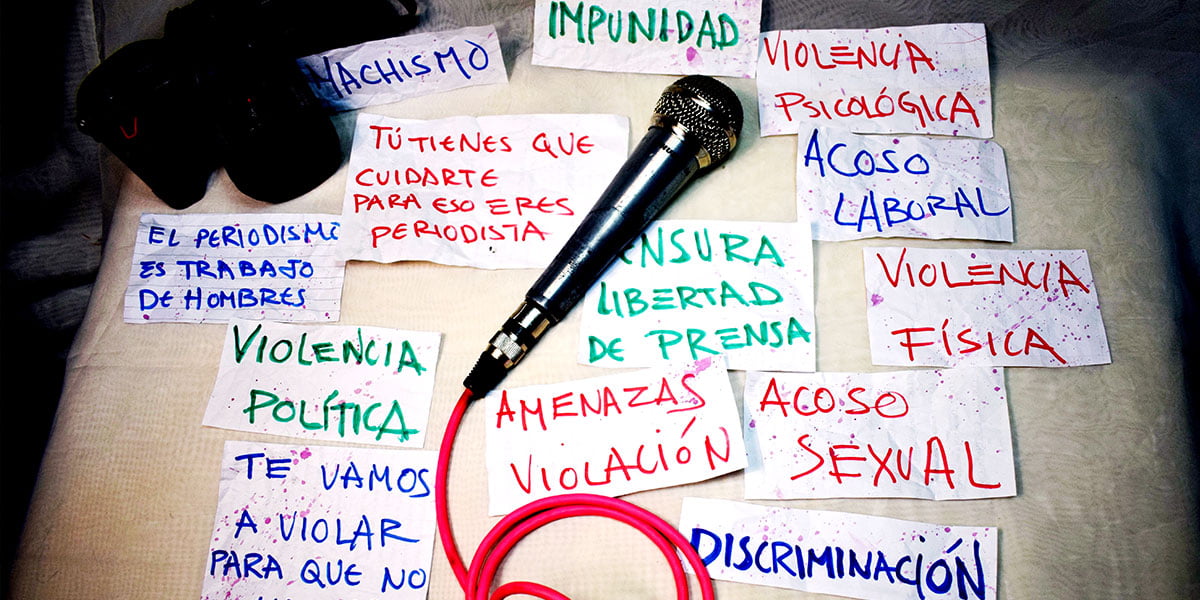 IMPUNIDAD
MACHISMO
VIOLENCIA
PSICOLÓGICA
TÚ TIENES QUE
CUIDARTE
PARA ESO ERES
PERIODISTA
ACOSO
LABORAL
EL PERIODISMO
ES TRABAJO
DE HOMBRES
ENSURA
LIBERTAD
DE PRENSA
VIOLENCIA
FÍSICA
VIOLENCIA
POLÍTICA
AMENAZAS
VIOLACIÓN
ACOSO
SEXUAL
TE VAMOS
A VIOLAR
PARA QUE NO
DISCRIMINACIÓN